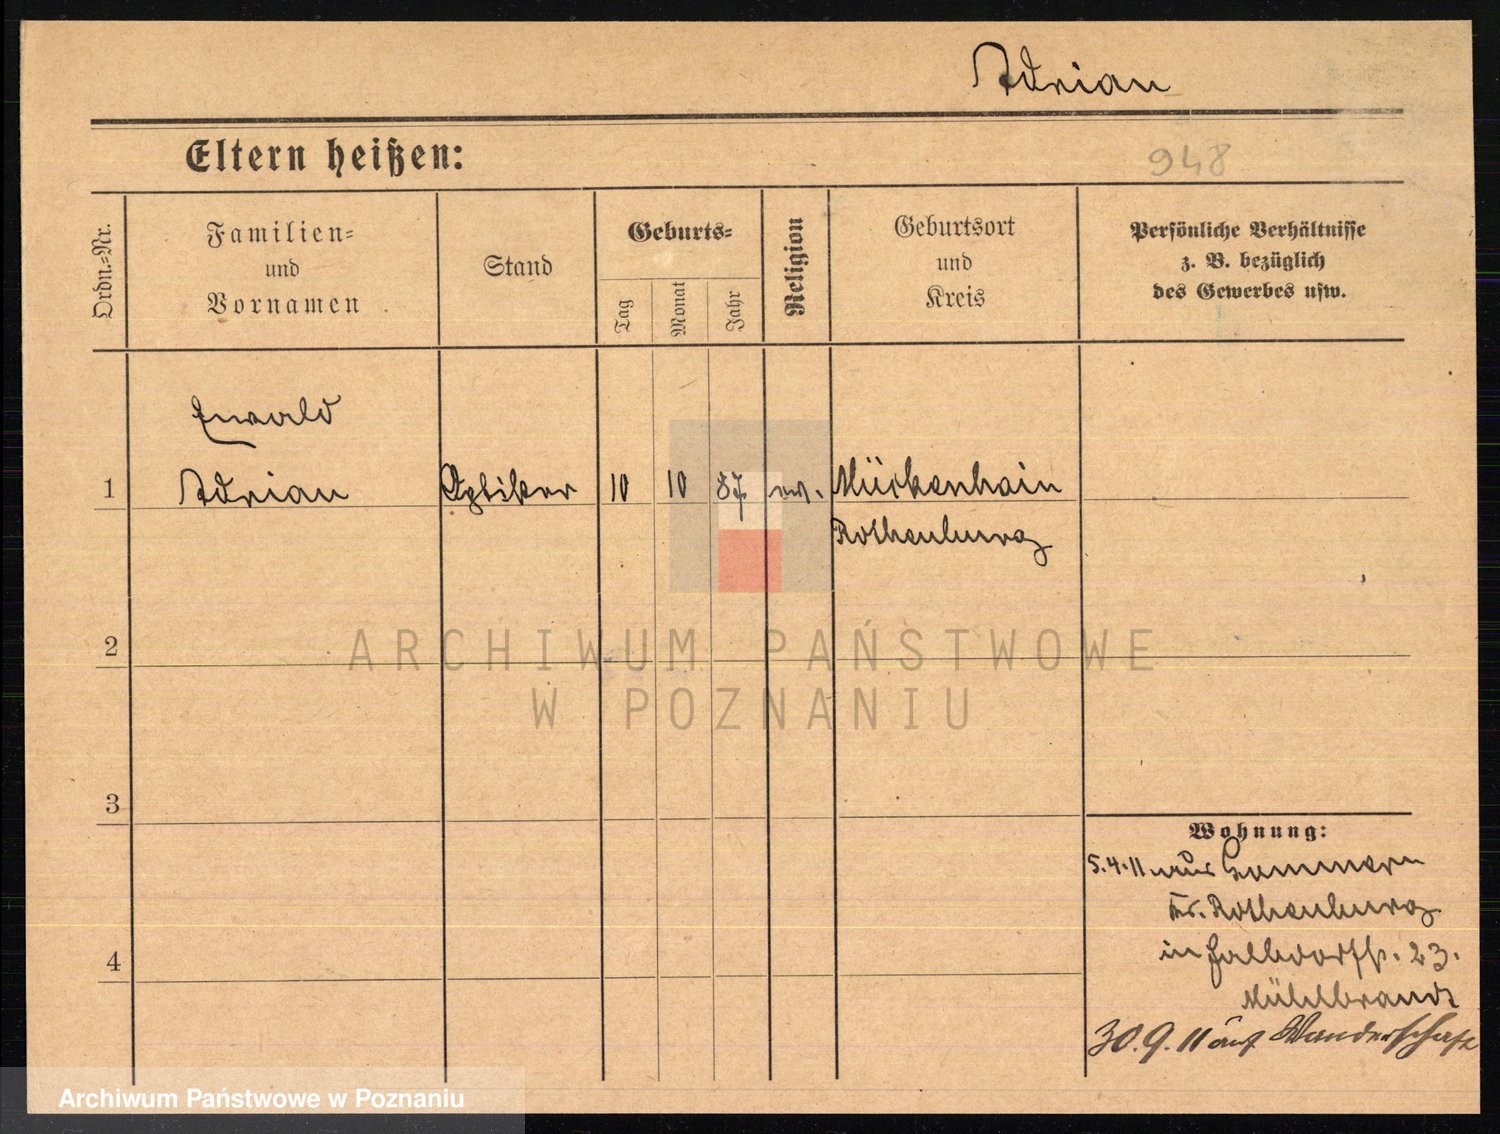 Adrian
Eltern heißen:
948
Ordn.-Nr.
Familien-
und
Vornamen
Stand
Geburts-
Tag
Monat
Jahr
Religion
Geburtsort
und
Kreis
Persönliche Verhältnisse
z. B. bezüglich
des Gewerbes usw.
Ewald
1 Adrian Optiker 10 10 87 ev. Mückenhain
Rothenburg
2
ARCHIWUM PAŃSTWOWE
W POZNANIU
3
Wohnung:
5.4.11 aus
Kr. Rothenburg
4
in Halbdorfstr. 23.
Mühlbrandt
30.9.11 auf Wanderschaft
Archiwum Państwowe w Poznaniu